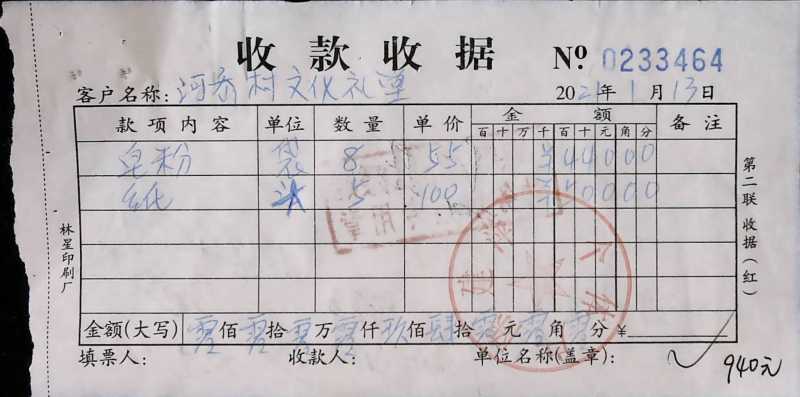 收款收据 Nº 0233464
客户名称: 河 村文化礼堂 2021年1月13日
款项内容 单位 数量 单价 金额 备注
百 十 万 千 百 十 元 角 分
皂粉 袋 8 55 ¥44000
纸 5 100 ¥50000
金额(大写) 零佰零拾零万零仟玖佰肆拾零元零角零分 ¥
填票人: 收款人: 单位名称(盖章):
940元
第二联 收据(红)
林星印刷厂